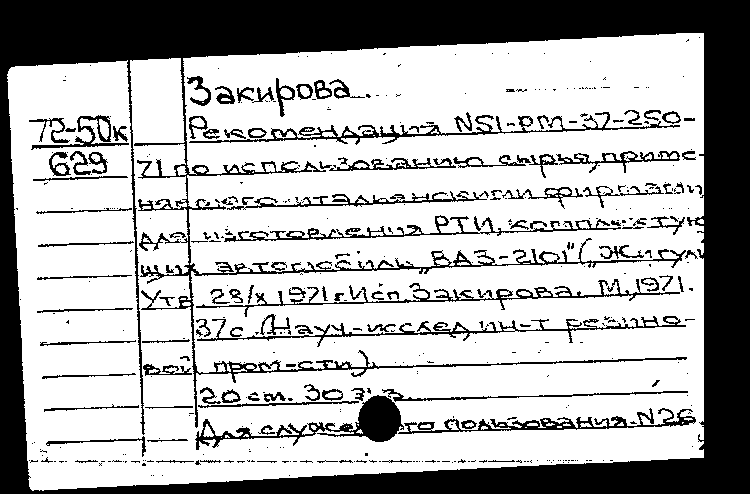 Закирова.
72-50к
Рекомендация NSI-РМ-37-250-
629
71 по использованию сырья, приме-
няемого итальянскими фирмами,
для изготовления РТИ, комплектую
щих автомобиль „ВАЗ-2101" („Жигули
Утв. 28/X 1971г. Исп. Закирова. М., 1971.
37с. (Науч.-исслед ин-т резино-
вой пром-сти).
20 см. 30 экз.
Для служе го пользования. N26.